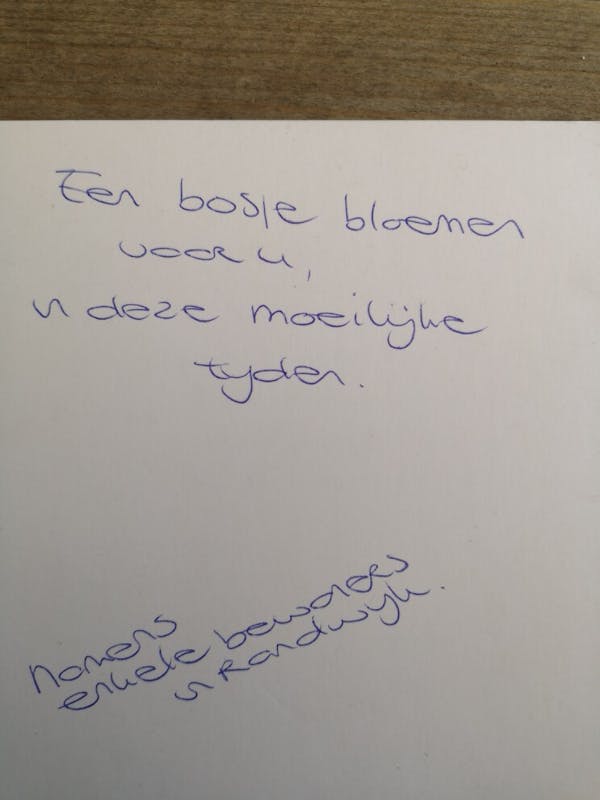 Een bosje bloemen
voor u,
in deze moeilijke
tijden.
Namens
enkele bewoners
in Randwijk.